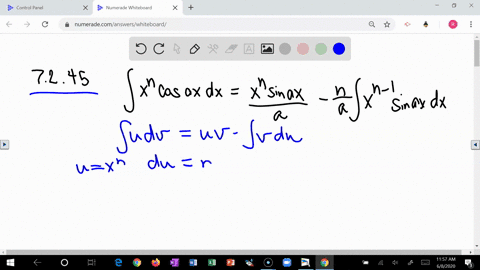 Control Panel
Numerade Whiteboard
numerade.com/answers/whiteboard/
7.2.45
∫ xⁿ cos ax dx = xⁿ sin ax / a − n/a ∫ xⁿ⁻¹ sin ax dx
∫ u dv = uv - ∫ v du
u = xⁿ du = n
11:57 AM
5/8/2020